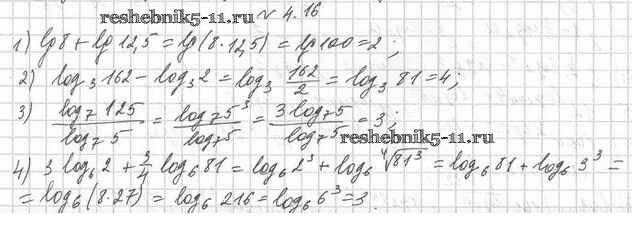 № 4.16
reshebnik5-11.ru
1) lg 8 + lg 12,5 = lg (8·12,5) = lg 100 = 2 ;
2) log₃ 162 - log₃ 2 = log₃ 162/2 = log₃ 81 = 4;
3) log₇ 125 / log₇ 5 = log₇ 5³ / log₇ 5 = 3 log₇ 5 / log₇ 5 = 3;
reshebnik5-11.ru
4) 3 log₆ 2 + 3/4 log₆ 81 = log₆ 2³ + log₆ ⁴√81³ = log₆ 81 + log₆ 3³ =
= log₆ (8·27) = log₆ 216 = log₆ 6³ = 3.